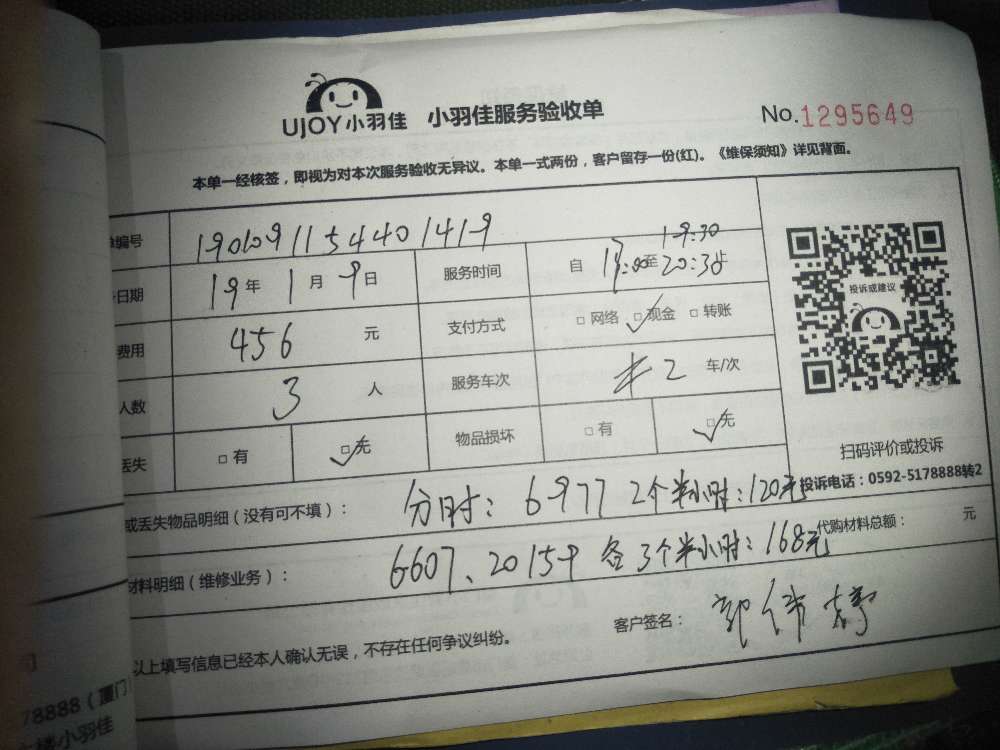 UJOY小羽佳 小羽佳服务验收单 No.1295649
本单一经核签，即视为对本次服务验收无异议。本单一式两份，客户留存一份(红)。《维保须知》详见背面。
编号 190109115440 1419
日期 19年 1月 9日 服务时间 自 17:00至 19:30 20:30止
费用 456 元 支付方式 □网络 □现金 □转账
人数 3 人 服务车次 2 车/次
丢失 □有 □无 物品损坏 □有 □无
投诉或建议
扫码评价或投诉
投诉电话：0592-5178888转2
或丢失物品明细（没有可不填）： 分时：6977 2个半小时：120元
材料明细（维修业务）： 6607、20159 各3个半小时：168元 代购材料总额： 元
以上填写信息已经本人确认无误，不存在任何争议纠纷。 客户签名：
78888（厦门
楼小羽佳